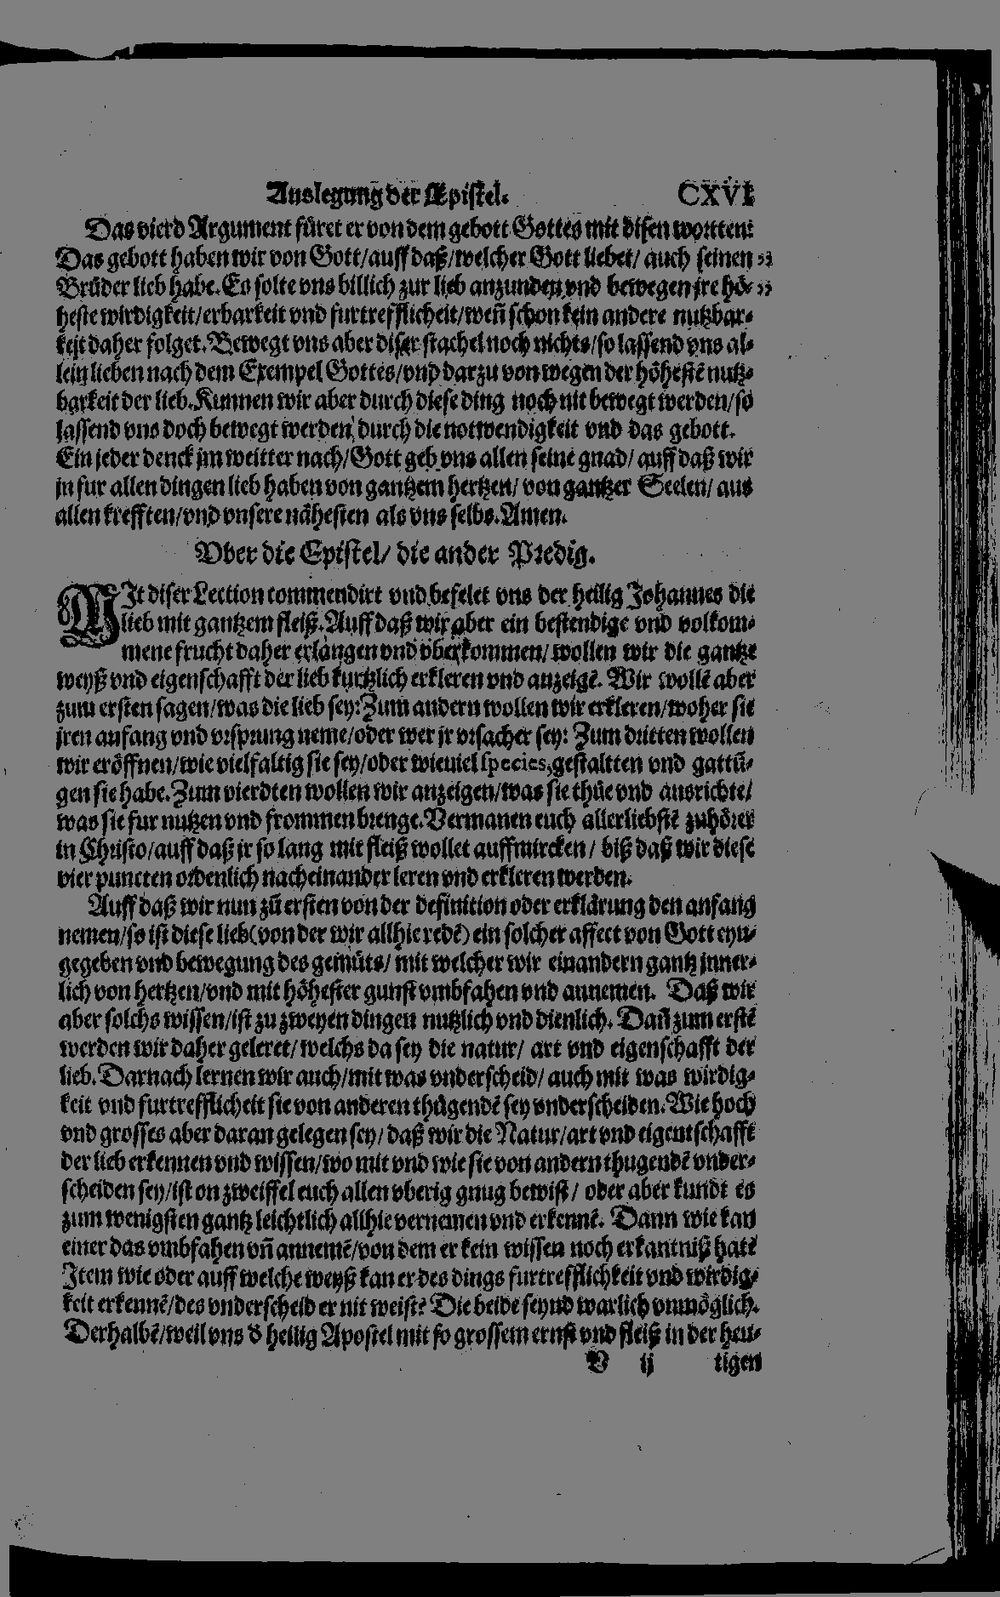 Auslegung der Epistel. CXVI
Das vierd Argument füret er von dem gebott Gottes mit disen wortten:
Das gebott haben wir von Gott/auff daß/welcher Gott liebet/ auch seinen „
Brůder lieb habe. Es solte vns billich zur lieb anzunden vnd bewegen jre hö- „
heste wirdigkeit/erbarkeit vnd furtrefflicheit/weñ schon kein andere nutzbar-
keit daher folget. Bewegt vns aber diser stachel noch nichts/so lassend vns al-
lein lieben nach dem Exempel Gottes/vnd darzu von wegen der höhestē nutz-
barkeit der lieb. Kunnen wir aber durch diese ding noch nit bewegt werden/so
lassend vns doch bewegt werden durch die notwendigkeit vnd das gebott.
Ein jeder denck jm weitter nach/Gott geb vns allen seine gnad/ auff daß wir
jn fur allen dingen lieb haben von gantzem hertzen/ von gantzer Seelen/ aus
allen krefften/vnd vnsere nähesten als vns selbs. Amen.
Vber die Epistel/ die ander Predig.
MIt diser Lection commendirt vnd befelet vns der heilig Johannes die
lieb mit gantzem fleiß. Auff daß wir aber ein bestendige vnd volkom-
mene frucht daher erlangen vnd vberkommen/ wollen wir die gantze
weyß vnd eigenschafft der lieb kurtzlich erkleren vnd anzeigē. Wir wollē aber
zum ersten sagen/was die lieb sey: Zum andern wollen wir erkleren/woher sie
jren anfang vnd vrsprung neme/oder wer jr vrsacher sey: Zum dritten wollen
wir eröffnen/wie vielfaltig sie sey/oder wieuiel species, gestaltten vnd gattū-
gen sie habe. Zum vierdten wollen wir anzeigen/was sie thüe vnd ausrichte/
was sie fur nutzen vnd frommen brenge. Vermanen euch allerliebstē zuhörer
in Christo/auff daß jr so lang mit fleiß wollet auffmircken/ biß daß wir diese
vier puncten ordenlich nacheinander leren vnd erkleren werden.
Auff daß wir nun zū ersten von der definition oder erklärung den anfang
nemen/so ist diese lieb (von der wir allhie redē) ein solcher affect von Gott eyn-
gegeben vnd bewegung des gemüts/ mit welcher wir einandern gantz jnner-
lich von hertzen/vnd mit höhester gunst vmbfahen vnd annemen. Daß wir
aber solchs wissen/ist zu zweyen dingen nutzlich vnd dienlich. Dañ zum erstē
werden wir daher geleret/ welchs da sey die natur/ art vnd eigenschafft der
lieb. Darnach lernen wir auch/mit was vnderscheid/ auch mit was wirdig-
keit vnd furtrefflicheit sie von anderen thügendē sey vnderscheiden. Wie hoch
vnd grosses aber daran gelegen sey/ daß wir die Natur/art vnd eigentschafft
der lieb erkennen vnd wissen/wo mit vnd wie sie von andern thugendē vnder-
scheiden sey/ist on zweiffel euch allen vberig gnug bewist/ oder aber kundt es
zum wenigsten gantz leichtlich allhie vernemen vnd erkennē. Dann wie kan
einer das vmbfahen vñ annemē/von dem er kein wissen noch erkantniß hat?
Item wie oder auff welche weyß kan er des dings furtrefflichkeit vnd wirdig-
keit erkennē/des vnderscheid er nit weist? Die beide seynd warlich vnmöglich.
Derhalbē/weil vns d heilig Apostel mit so grossem ernst vnd fleiß in der heu-
V ij tigen